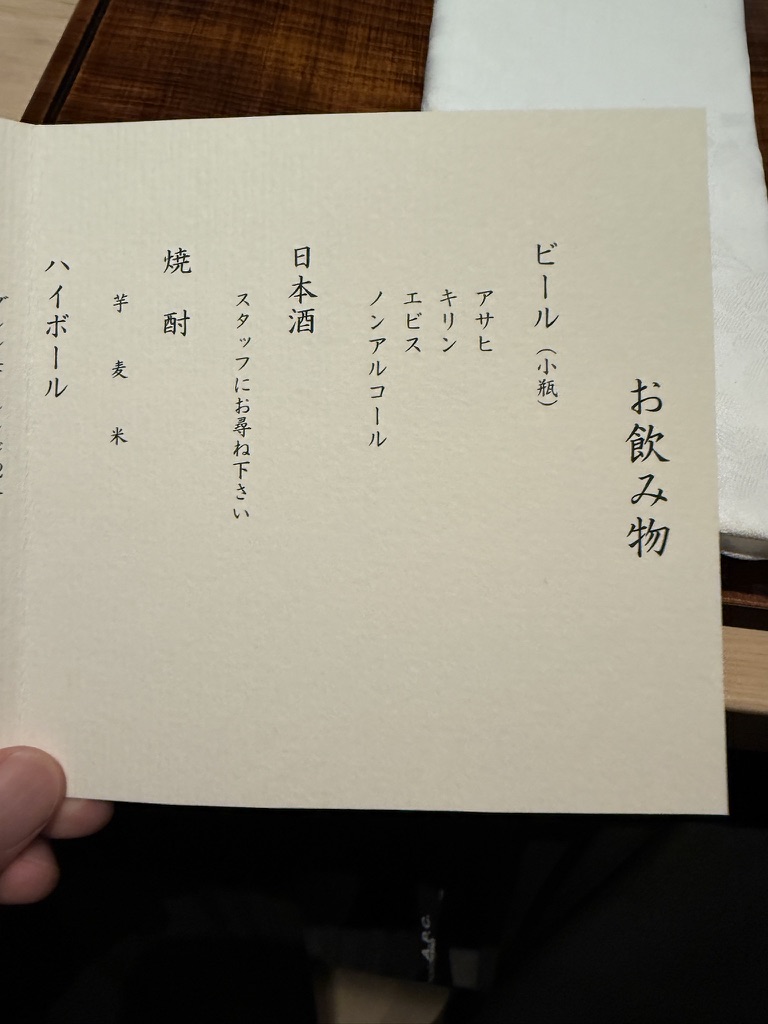 お飲み物
ビール（小瓶）
アサヒ
キリン
エビス
ノンアルコール
日本酒
スタッフにお尋ね下さい
焼酎
芋 麦 米
ハイボール